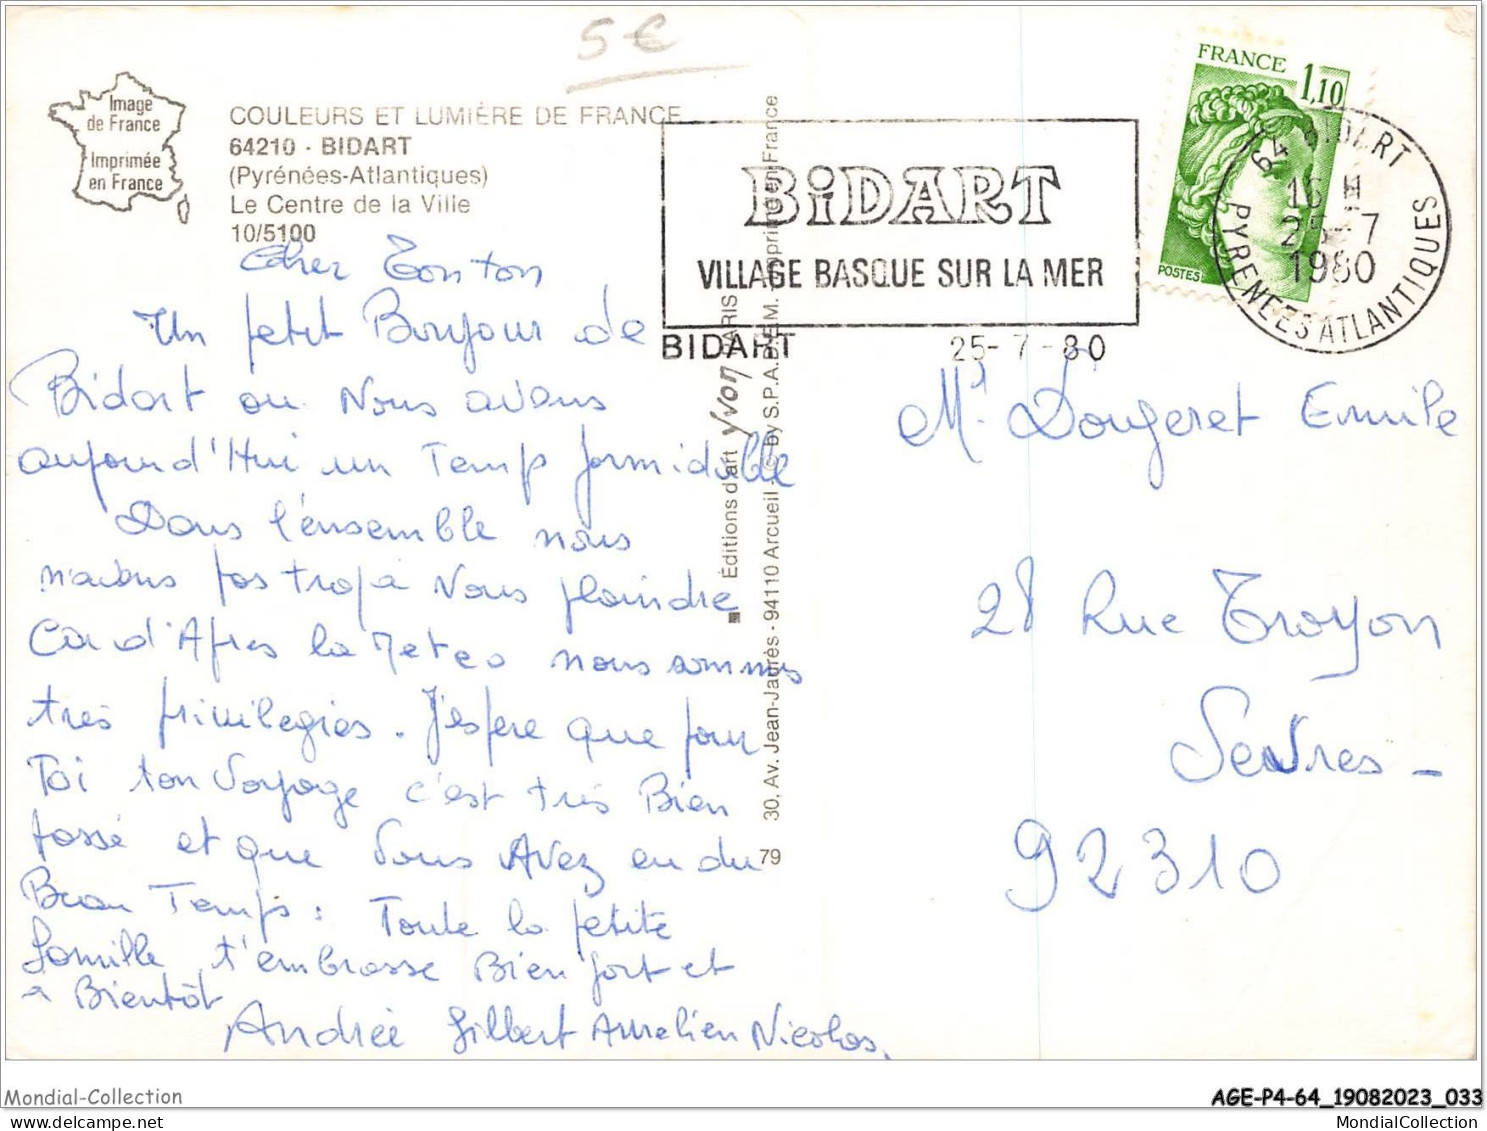 5 €
Image
de France
Imprimée
en France
COULEURS ET LUMIÈRE DE FRANCE
64210 - BIDART
(Pyrénées-Atlantiques)
Le Centre de la Ville
10/5100
Cher Tonton
Un petit Bonjour de
Bidart ou Nous avons
aujourd'Hui un Temp formidable
Dans l'ensemble nous
n'avons pas trop à Nous plaindre
Car d'Apres la Meteo nous sommes
très privilegies. J'espère que pour
Toi ton Voyage c'est très Bien
passé et que Vous Avez eu du
Beau Temps : Toute la petite
famille t'embrasse Bien fort et
a Bientôt
Andrée Gilbert Aurelien Nicolas.
Éditions d'art Yvon PARIS
30, Av. Jean-Jaurès - 94110 Arcueil - © by S.P.A.D.E.M. - Imprimé en France
79
BiDART
VILLAGE BASQUE SUR LA MER
BIDART 25-7-80
FRANCE
1,10
POSTES
64 BIDART
16 H
25-7
1980
PYRENEES ATLANTIQUES
Mr Dougeret Emile
28 Rue Troyon
Sevres -
92310
Mondial-Collection
AGE-P4-64_19082023_033
MondialCollection